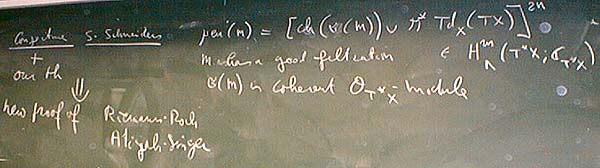 Conjecture S. Schneiders
+
our th
⇓
new proof of Riemann-Roch
Atiyah-Singer
μeu(m) = [ch(σ(m)) ∪ π* Td_X(TX)]^{2n}
M has a good filtration ∈ H^{2n}_Λ(T*X; C_{T*X})
σ(m) is coherent O_{T*X}-module